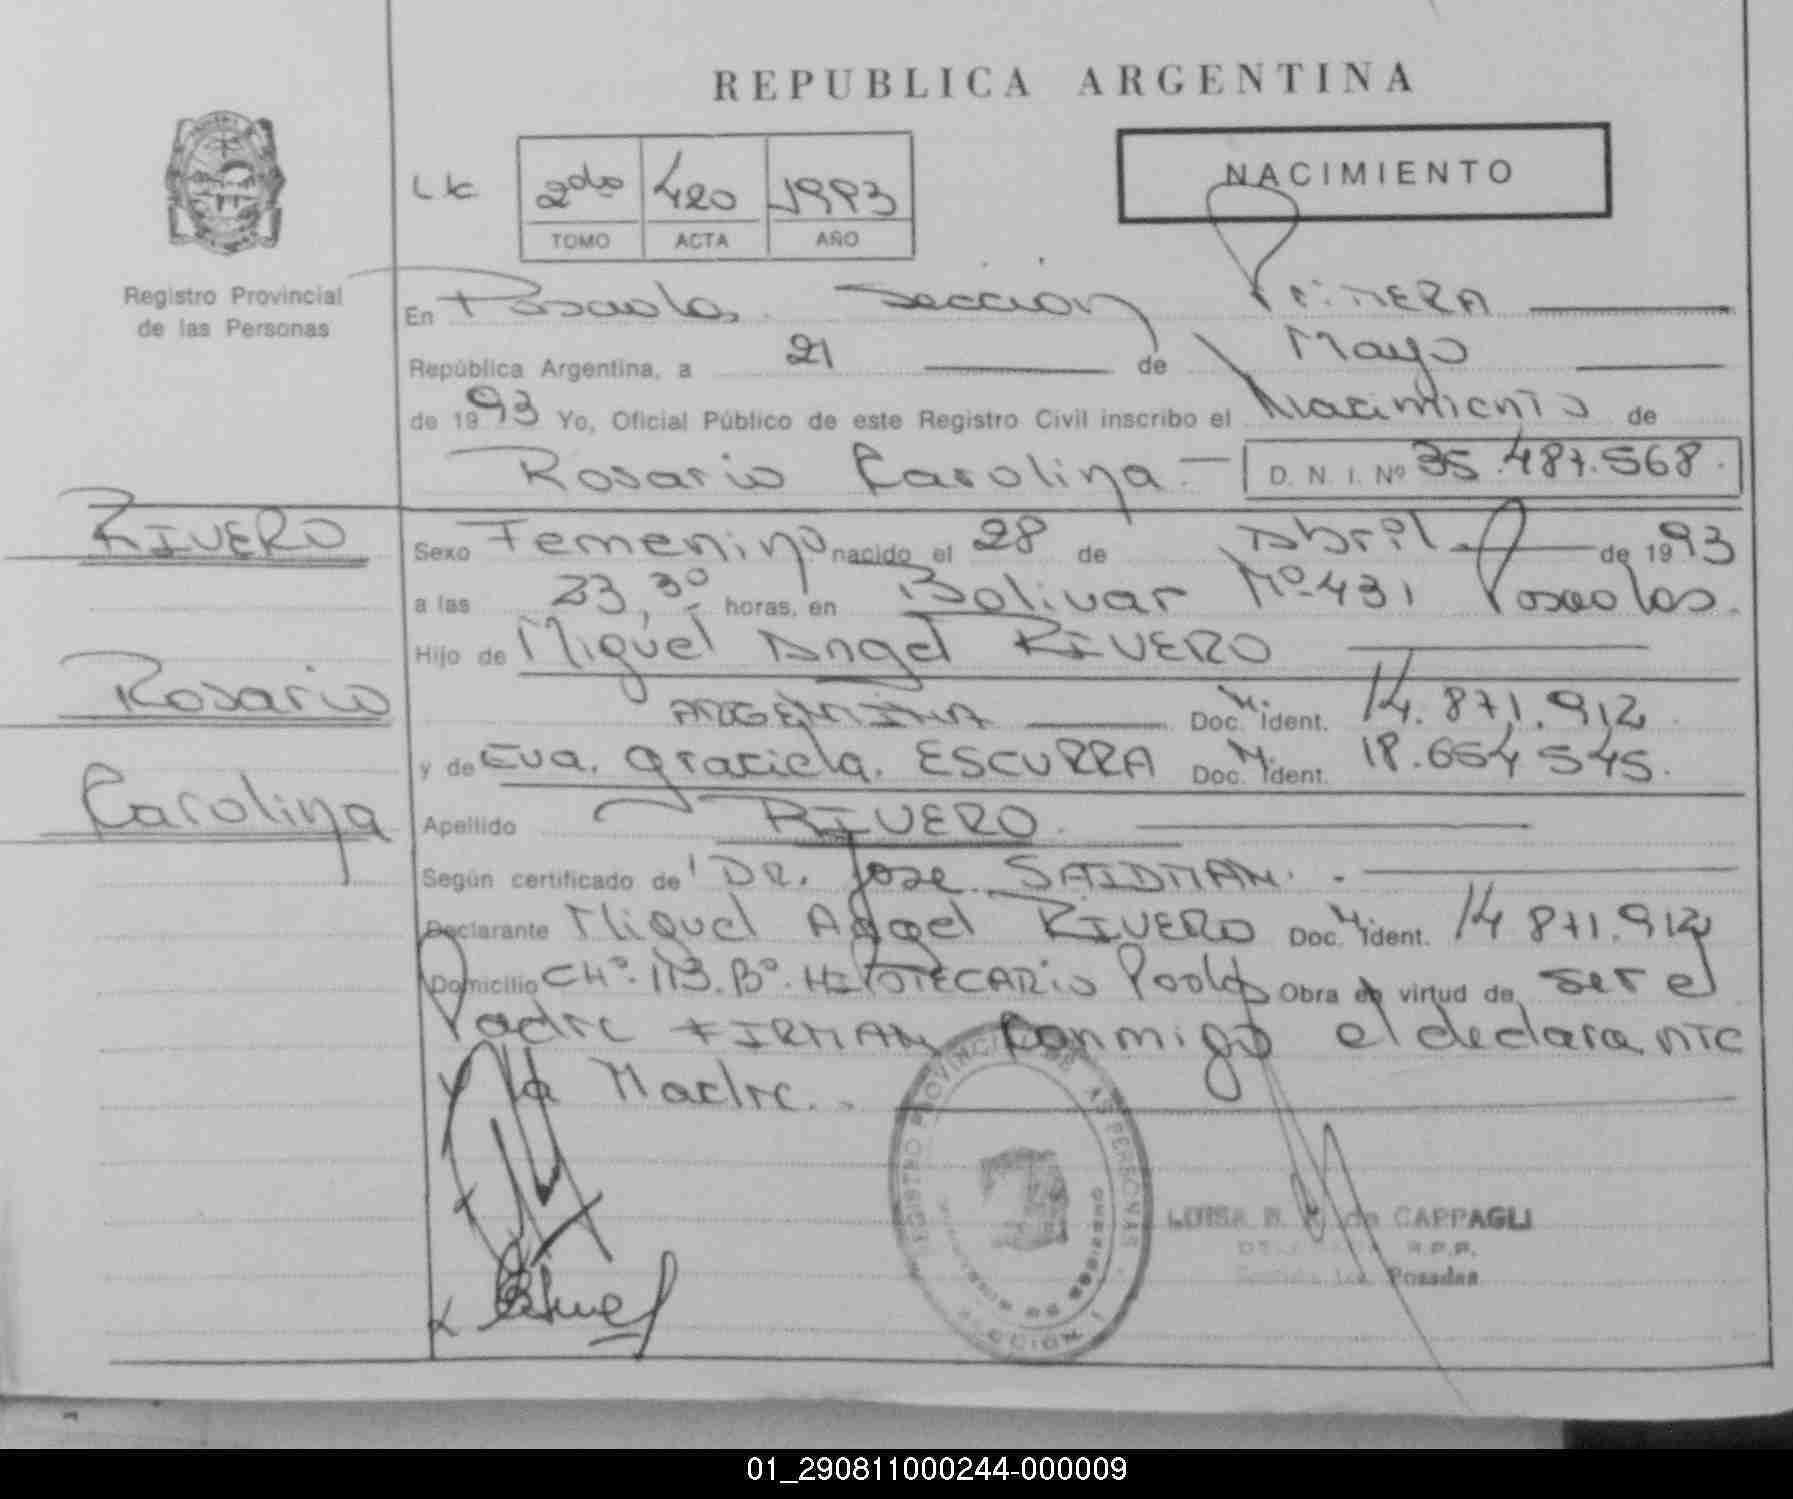 REPUBLICA ARGENTINA
NACIMIENTO
2do 420 1993
TOMO ACTA AÑO
Registro Provincial
de las Personas
En Posadas Sección PRIMERA
República Argentina, a 21 de Mayo
de 1993 Yo, Oficial Público de este Registro Civil inscribo el Nacimiento de
Rosario Carolina D. N. I. Nº 35.487.568.
RIVERO
Rosario
Carolina
Sexo Femenino nacido el 28 de Abril de 1993
a las 23,30 horas, en Bolivar Nº 431 Posadas.
Hijo de Miguel Angel RIVERO
ARGENTINA Doc. M. Ident. 14.871.912
y de Eva Graciela ESCURRA Doc. M. Ident. 18.654.545.
Apellido RIVERO
Según certificado de DR. Jose SAIDMAN.
Declarante Miguel Angel RIVERO Doc. M. Ident. 14 871.912
Domicilio CHº. 113. Bº. HIPOTECARIO Pdas Obra en virtud de ser el
Padre FIRMAN conmigo el declarante
y la Madre.
REGISTRO PROVINCIAL DE LAS PERSONAS
LUISA de CAPPAGLI
R.P.P.
Posadas
01_290811000244-000009